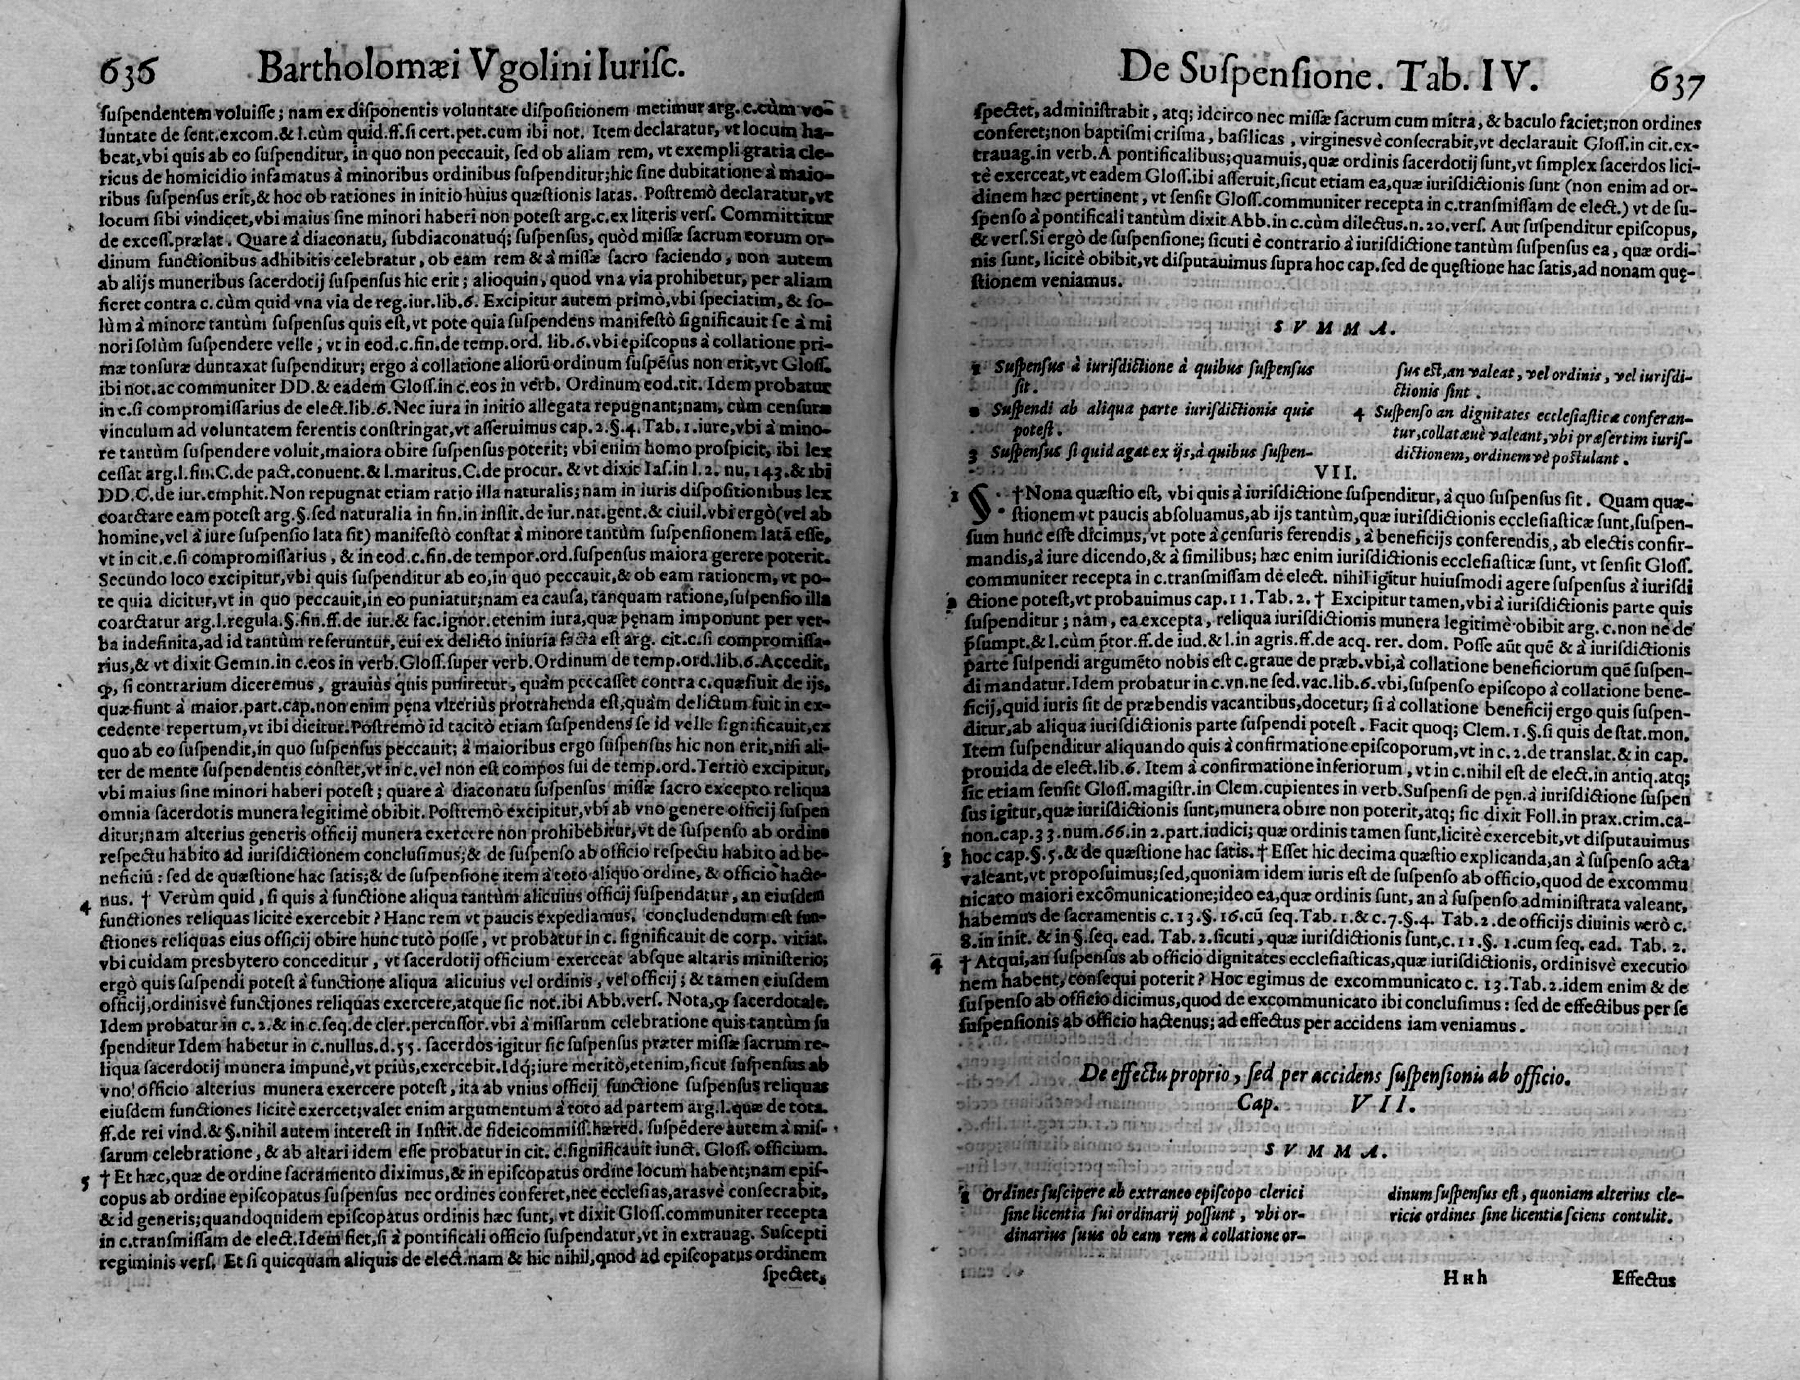 636 Bartholomæi Vgolini Iurisc.
suspendentem voluisse; nam ex disponentis voluntate dispositionem metimur arg. c.cùm vo-
luntate de sent.excom.& l.cùm quid.ff.si cert.pet.cum ibi not. Item declaratur, vt locum ha-
beat,vbi quis ab eo suspenditur, in quo non peccauit, sed ob aliam rem, vt exempli gratia cle-
ricus de homicidio infamatus à minoribus ordinibus suspenditur;hic sine dubitatione à maio-
ribus suspensus erit,& hoc ob rationes in initio huius quæstionis latas. Postremò declaratur,vt
locum sibi vindicet,vbi maius sine minori haberi non potest arg.c.ex literis vers. Committitur
de excess.prælat. Quare à diaconatu, subdiaconatuq́; suspensus, quòd missæ sacrum eorum or-
dinum functionibus adhibitis celebratur, ob eam rem & à missæ sacro faciendo, non autem
ab alijs muneribus sacerdotij suspensus hic erit; alioquin, quod vna via prohibetur, per aliam
fieret contra c. cùm quid vna via de reg.iur.lib.6. Excipitur autem primò,vbi speciatim, & so-
lùm à minore tantùm suspensus quis est, vt pote quia suspendens manifestò significauit se à mi
nori solùm suspendere velle, vt in eod.c.fin.de temp.ord. lib.6.vbi episcopus à collatione pri-
mæ tonsuræ duntaxat suspenditur; ergo à collatione aliorũ ordinum suspẽsus non erit,vt Gloss.
ibi not.ac communiter DD.& eadem Gloss.in c.eos in verb. Ordinum eod.tit. Idem probatur
in c.si compromissarius de elect.lib.6.Nec iura in initio allegata repugnant;nam, cùm censuræ
vinculum ad voluntatem ferentis constringat,vt asseruimus cap. 2.§.4. Tab.1.iure,vbi à mino-
re tantùm suspendere voluit,maiora obire suspensus poterit; vbi enim homo prospicit, ibi lex
cessat arg.l.fin.C.de pact.conuent.& l.maritus.C.de procur. & vt dixit Ias.in l.2. nu, 143.& ibi
DD.C.de iur.emphit.Non repugnat etiam ratio illa naturalis;nam in iuris dispositionibus lex
coarctare eam potest arg.§.sed naturalia in fin.in instit.de iur.nat.gent.& ciuil.vbi ergò(vel ab
homine,vel à iure suspensio lata sit) manifestò constat à minore tantùm suspensionem latã esse,
vt in cit.c.si compromissarius, & in eod.c.fin.de tempor.ord.suspensus maiora gerere poterit.
Secundo loco excipitur,vbi quis suspenditur ab eo,in quo peccauit,& ob eam rationem, vt po-
te quia dicitur,vt in quo peccauit,in eo puniatur;nam ea causa, tanquam ratione,suspensio illa
coarctatur arg.l.regula.§.fin.ff.de iur.& fac.ignor.etenim iura,quæ pęnam imponunt per ver-
ba indefinita,ad id tantùm referuntur, cui ex delicto iniuria facta est arg. cit.c.si compromissa-
rius,& vt dixit Gemin.in c.eos in verb.Gloss.super verb.Ordinum de temp.ord.lib.6.Accedit,
ꝙ, si contrarium diceremus, grauiùs quis puniretur, quàm peccasset contra c.quæsiuit de ijs,
quæ fiunt à maior.part.cap.non enim pęna vlteriùs protrahenda est,quàm delictum fuit in ex-
cedente repertum,vt ibi dicitur.Postremò id tacitò etiam suspendens se id velle significauit,ex
quo ab eo suspendit,in quo suspensus peccauit; à maioribus ergo suspensus hic non erit,nisi ali-
ter de mente suspendentis constet,vt in c.vel non est compos sui de temp.ord.Tertiò excipitur,
vbi maius sine minori haberi potest; quare à diaconatu suspensus missæ sacro excepto reliqua
omnia sacerdotis munera legitimè obibit. Postremò excipitur,vbi ab vno genere officij suspen
ditur;nam alterius generis officij munera exercere non prohibebitur,vt de suspenso ab ordine
respectu habito ad iurisdictionem conclusimus;& de suspenso ab officio respectu habito ad be-
neficiũ: sed de quæstione hac satis;& de suspensione item à toto aliquo ordine, & officio hacte-
4 nus. † Verùm quid, si quis à functione aliqua tantùm alicuius officij suspendatur, an eiusdem
functiones reliquas licitè exercebit? Hanc rem vt paucis expediamus, concludendum est fun-
ctiones reliquas eius officij obire hunc tutò posse, vt probatur in c. significauit de corp. vitiat.
vbi cuidam presbytero conceditur, vt sacerdotij officium exerceat absque altaris ministerio;
ergò quis suspendi potest à functione aliqua alicuius vel ordinis, vel officij; & tamen eiusdem
officij,ordinisvè functiones reliquas exercere,atque sic not.ibi Abb.vers. Nota,ꝙ sacerdotale.
Idem probatur in c.2.& in c.seq.de cler.percussor.vbi à missarum celebratione quis tantùm su
spenditur Idem habetur in c.nullus.d.55. sacerdos igitur sic suspensus præter missæ sacrum re-
liqua sacerdotij munera impunè,vt priùs,exercebit.Idq́;iure meritò,etenim,sicut suspensus ab
vno officio alterius munera exercere potest, ita ab vnius officij functione suspensus reliquas
eiusdem functiones licitè exercet;valet enim argumentum à toto ad partem arg.l.quæ de tota.
ff.de rei vind.& §.nihil autem interest in Instit.de fideicommiss.hæred. suspẽdere autem à mis-
sarum celebratione, & ab altari idem esse probatur in cit. c.significauit iunct. Gloss. officium.
5 † Et hæc,quæ de ordine sacramento diximus,& in episcopatus ordine locum habent;nam epis-
copus ab ordine episcopatus suspensus nec ordines conferet,nec ecclesias,arasvè consecrabit,
& id generis;quandoquidem episcopatus ordinis hæc sunt, vt dixit Gloss.communiter recepta
in c.transmissam de elect.Idem fiet,si à pontificali officio suspendatur,vt in extrauag. Suscepti
regiminis vers. Et si quicquam aliquis de elect.nam & hic nihil,quod ad episcopatus ordinem
spectet,
De Suspensione. Tab. IV. 637
spectet, administrabit, atq; idcirco nec missæ sacrum cum mitra, & baculo faciet;non ordines
conferet;non baptismi crisma, basilicas, virginesvè consecrabit,vt declarauit Gloss.in cit.ex-
trauag.in verb.A pontificalibus;quamuis,quæ ordinis sacerdotij sunt,vt simplex sacerdos lici-
tè exerceat,vt eadem Gloss.ibi asseruit,sicut etiam ea,quæ iurisdictionis sunt (non enim ad or-
dinem hæc pertinent, vt sensit Gloss.communiter recepta in c.transmissam de elect.) vt de su-
spenso à pontificali tantùm dixit Abb.in c.cùm dilectus.n.20.vers. Aut suspenditur episcopus,
& vers.Si ergò de suspensione; sicuti è contrario à iurisdictione tantùm suspensus ea, quæ ordi-
nis sunt, licitè obibit,vt disputauimus supra hoc cap.sed de quęstione hac satis,ad nonam quę-
stionem veniamus.
SVMMA.
1 Suspensus à iurisdictione à quibus suspensus
sit.
2 Suspendi ab aliqua parte iurisdictionis quis
potest.
3 Suspensus si quid agat ex ijs,à quibus suspen-
sus est,an valeat, vel ordinis, vel iurisdi-
ctionis sint.
4 Suspenso an dignitates ecclesiasticæ conferan-
tur,collatæuè valeant,vbi præsertim iuris-
dictionem, ordinem vè postulant.
VII.
1 §. †Nona quæstio est, vbi quis à iurisdictione suspenditur, à quo suspensus sit. Quam quæ-
stionem vt paucis absoluamus,ab ijs tantùm,quæ iurisdictionis ecclesiasticæ sunt,suspen-
sum hunc esse dicimus, vt pote à censuris ferendis, à beneficijs conferendis, ab electis confir-
mandis,à iure dicendo,& à similibus; hæc enim iurisdictionis ecclesiasticæ sunt, vt sensit Gloss.
communiter recepta in c.transmissam de elect. nihil igitur huiusmodi agere suspensus à iurisdi
2 ctione potest,vt probauimus cap.11.Tab.2.† Excipitur tamen,vbi à iurisdictionis parte quis
suspenditur; nam, ea excepta, reliqua iurisdictionis munera legitimè obibit arg. c.non ne de
p̃sumpt.& l.cùm p̃tor.ff.de iud.& l.in agris.ff.de acq. rer. dom. Posse aũt quẽ & à iurisdictionis
parte suspendi argumẽto nobis est c.graue de præb.vbi,à collatione beneficiorum quẽ suspen-
di mandatur.Idem probatur in c.vn.ne sed.vac.lib.6.vbi,suspenso episcopo à collatione bene-
ficij,quid iuris sit de præbendis vacantibus,docetur; si à collatione beneficij ergo quis suspen-
ditur,ab aliqua iurisdictionis parte suspendi potest. Facit quoq; Clem.1.§.si quis de stat.mon.
Item suspenditur aliquando quis à confirmatione episcoporum,vt in c.2.de translat.& in cap.
prouida de elect.lib.6. Item à confirmatione inferiorum, vt in c.nihil est de elect.in antiq.atq;
sic etiam sensit Gloss.magistr.in Clem.cupientes in verb.Suspensi de pęn.à iurisdictione suspen
sus igitur,quæ iurisdictionis sunt,munera obire non poterit,atq; sic dixit Foll.in prax.crim.ca-
non.cap.33.num.66.in 2.part.iudici; quæ ordinis tamen sunt,licitè exercebit,vt disputauimus
3 hoc cap.§.5.& de quæstione hac satis.† Esset hic decima quæstio explicanda,an à suspenso acta
valeant,vt proposuimus;sed,quoniam idem iuris est de suspenso ab officio,quod de excommu
nicato maiori excõmunicatione;ideo ea,quæ ordinis sunt, an à suspenso administrata valeant,
habemus de sacramentis c.13.§.16.cũ seq.Tab.1.& c.7.§.4. Tab.2.de officijs diuinis verò c.
8.in init. & in §.seq. ead. Tab.2.sicuti, quæ iurisdictionis sunt,c.11.§.1.cum seq. ead. Tab. 2.
4 † Atqui,an suspensus ab officio dignitates ecclesiasticas,quæ iurisdictionis, ordinisvè executio
nem habent, consequi poterit? Hoc egimus de excommunicato c. 13.Tab.2.idem enim & de
suspenso ab officio dicimus,quod de excommunicato ibi conclusimus: sed de effectibus per se
suspensionis ab officio hactenus; ad effectus per accidens iam veniamus.
De effectu proprio, sed per accidens suspensionis ab officio.
Cap. VII.
SVMMA.
1 Ordines suscipere ab extraneo episcopo clerici
sine licentia sui ordinarij possunt, vbi or-
dinarius suus ob eam rem à collatione or-
dinum suspensus est, quoniam alterius cle-
ricis ordines sine licentia sciens contulit.
Hhh Effectus